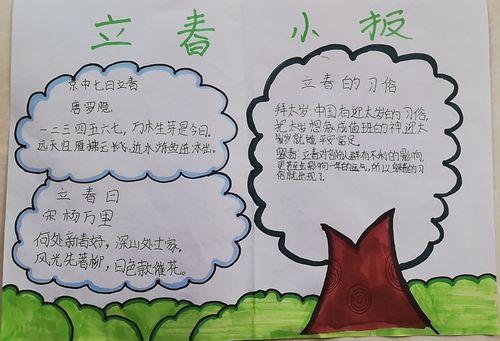 立春小报
京中七日立春
唐罗隐.
一二三四五六七，万木生芽是今日.
远天归雁拂云飞，近水游鱼迸冰出.
立春日
宋杨万里
何处新春好，深山处士家.
风光先著柳，日色款催花.
立春的习俗
拜太岁：中国有迎太岁的习俗，
把太岁想象成值班的神，迎太
岁就能平安富足.
躲春：立春对部分人群有不利的影响，
更甚至影响一年的运气，所以躲春的习
俗就出现了.